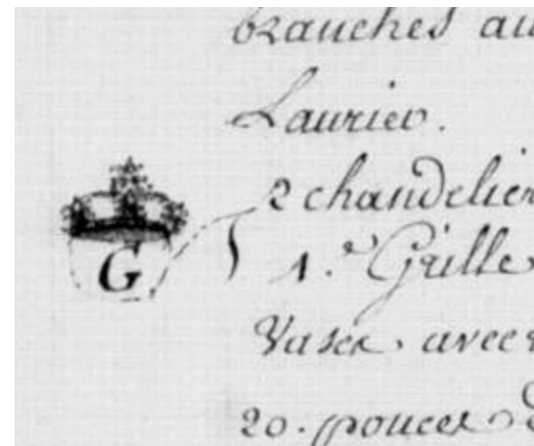 branches au
Laurier.
2 chandelier
G
1.e Grille
Vases avec
20. pouces